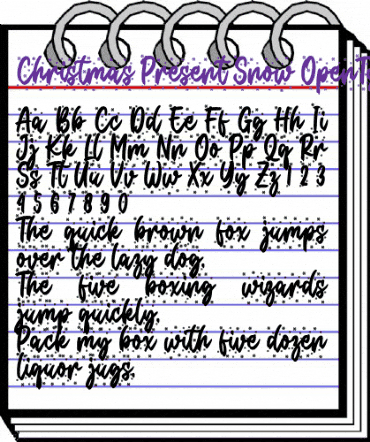 Christmas Present Snow OpenT
Aa Bb Cc Dd Ee Ff Gg Hh Ii
Jj Kk Ll Mm Nn Oo Pp Qq Rr
Ss Tt Uu Vv Ww Xx Yy Zz 1 2 3
4 5 6 7 8 9 0
The quick brown fox jumps
over the lazy dog.
The five boxing wizards
jump quickly.
Pack my box with five dozen
liquor jugs.